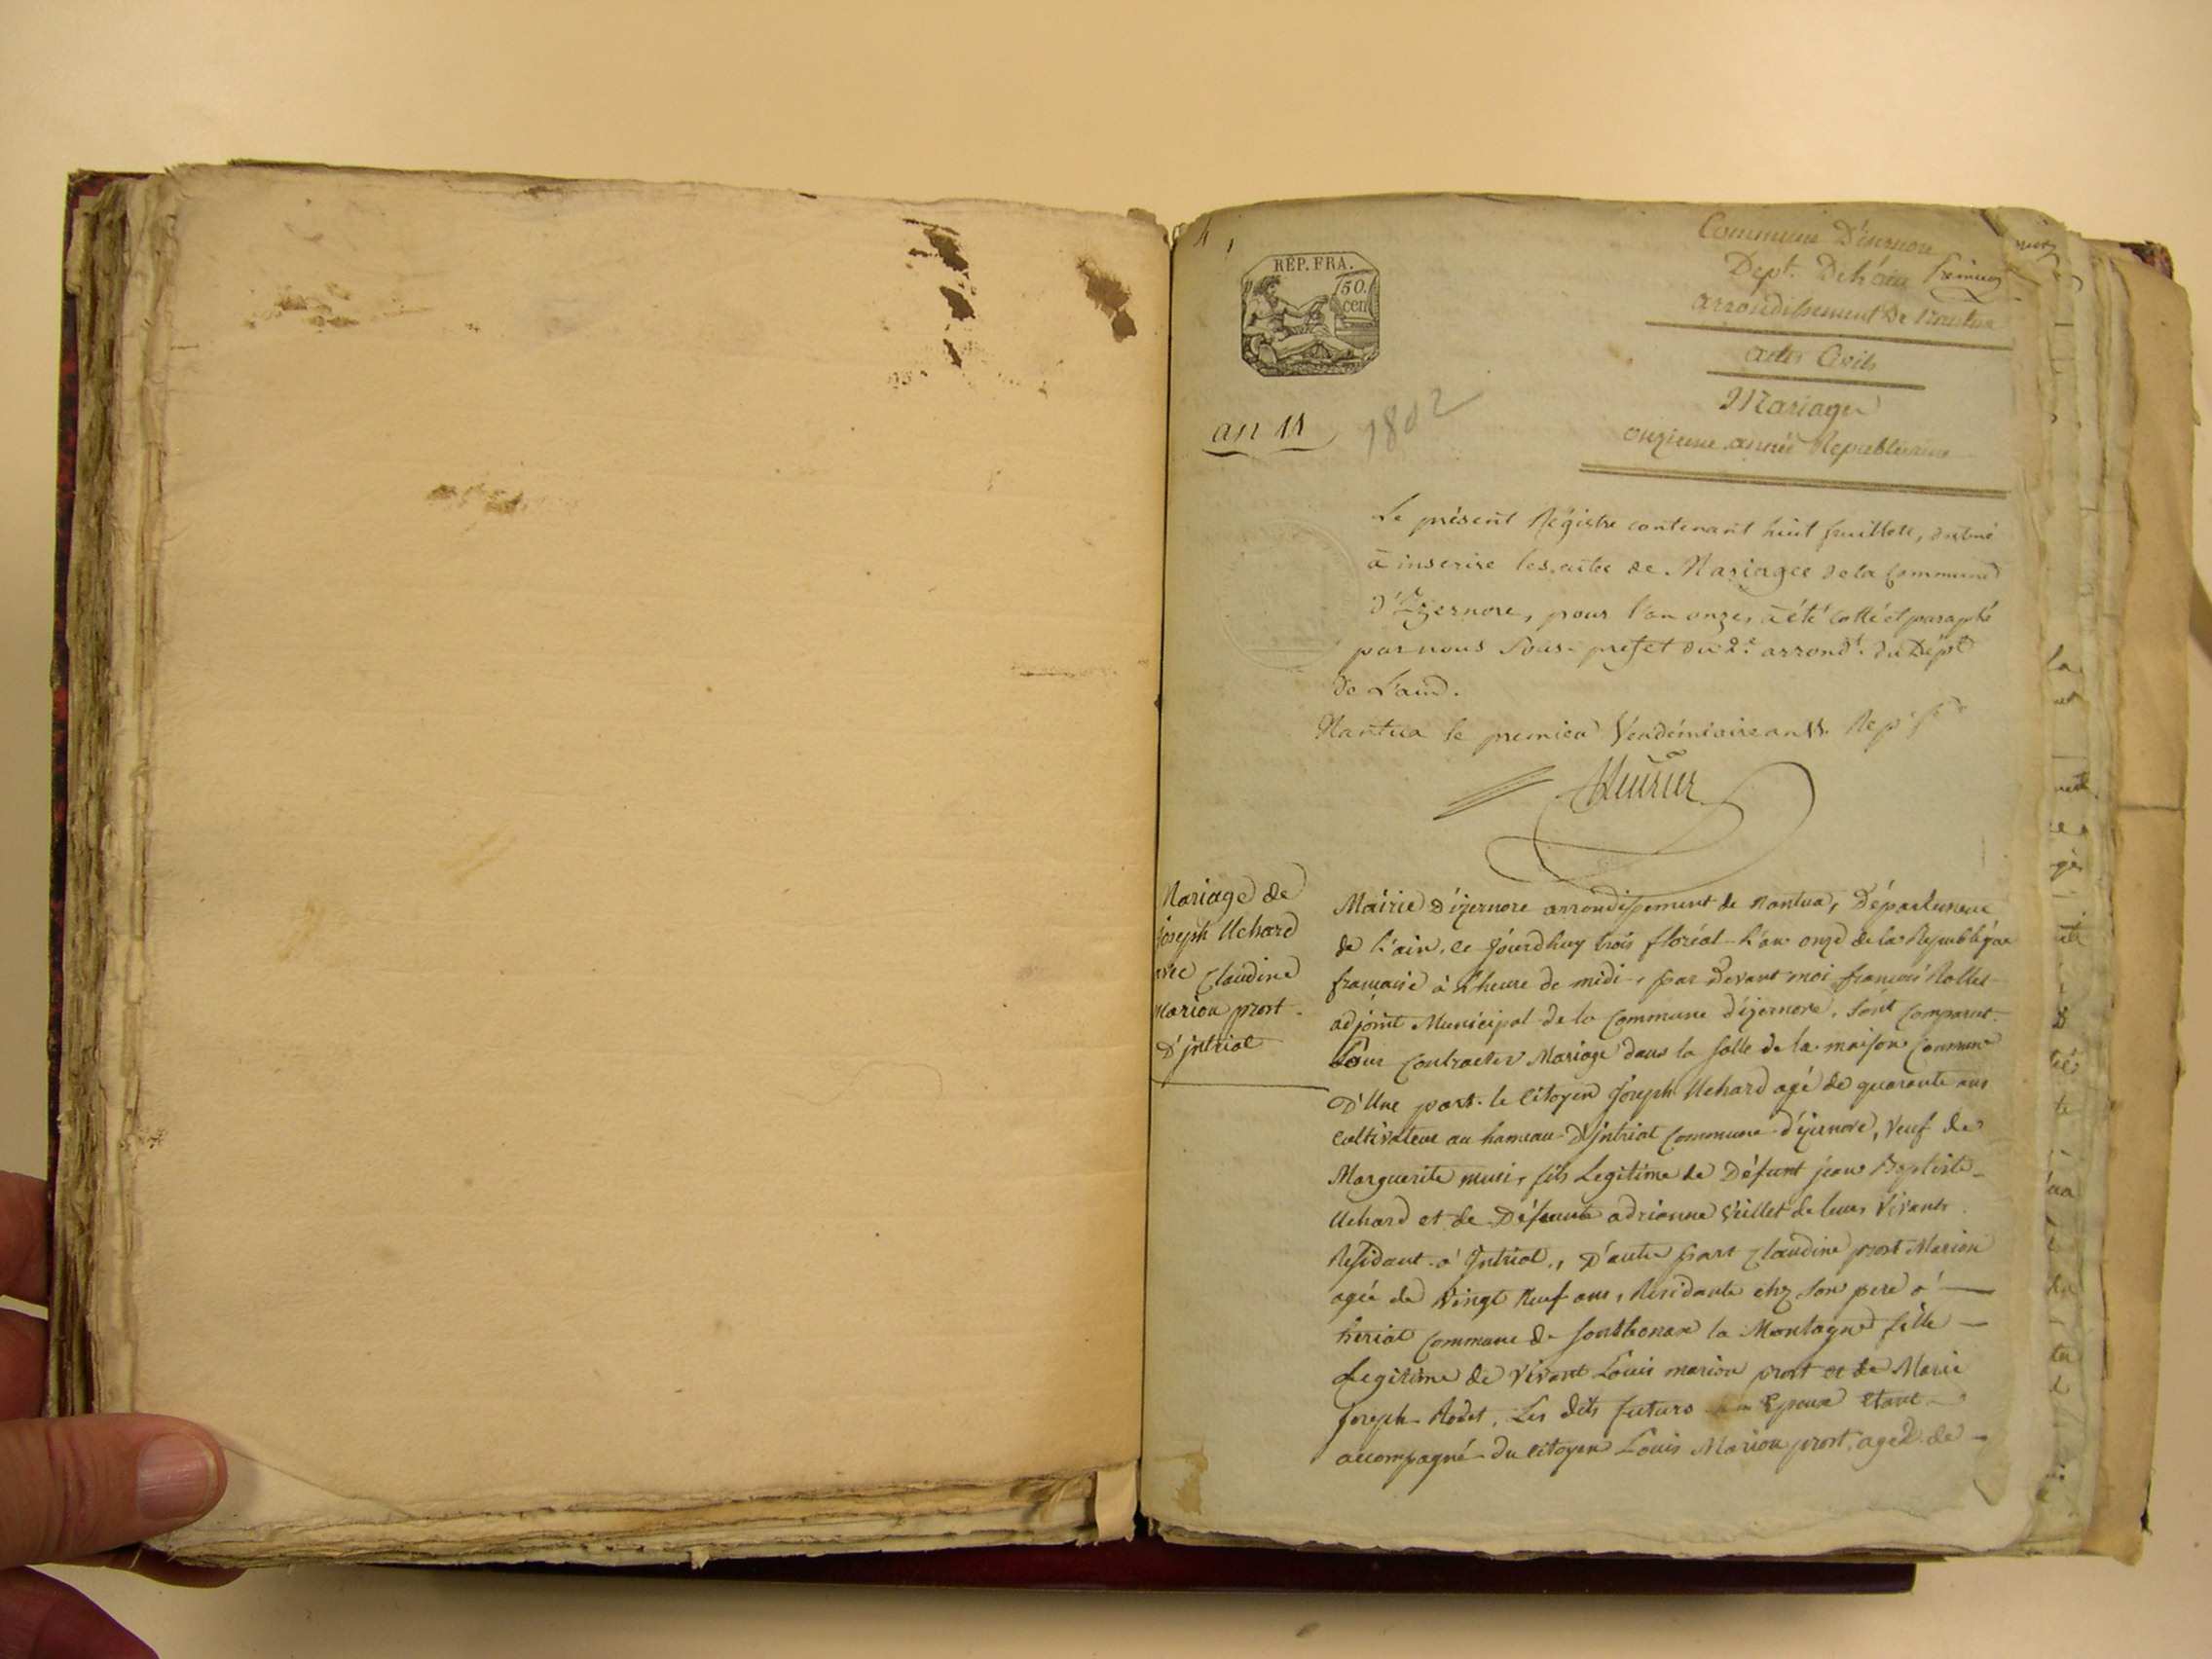 REP. FRA.
50.
cen
Commune D'izernore
Dept. De L'ain
arrondissement De Nantua
actes Civils
Mariages
onzieme année Republicaine
an 11
1802
Le présent Régistre contenant huit feuillets, destiné
à inscrire les actes de Mariages de la Commune
d'Izernore, pour l'an onze, a été cotté et paraphé
par nous Sous-préfet du 2e. arrondt. du Dépt
de L'ain.
Nantua le premier Vendémiaire an 11. Rep.
Mariage de
joseph Uchard
avec Claudine
Marion prost
D'jntriat
Mairie D'izernore arrondissement de Nantua, Département
de l'ain, ce jourdhuy trois floréal L'an onze de la Republique
francaise à L'heure de midi, par Devant moi francois Rollet
adjoint Municipal de la Commune d'izernore, sont comparut
Pour Contracter Mariage dans la salle de la maison Commune
D'Une part le Citoyen Joseph Uchard agé de quarante ans
Cultivateur au hameau D'Jntriat Commune d'izernore, veuf de
Marguerite, fils Legitime de Défunt jean Baptiste
Uchard et de Défunte adrianne Veillet de leurs Vivants
Résidant à Jntriat, D'autre part Claudine prost Marion
agée de Vingt Neuf ans, Residante chez son pere à
heriat Commune de Sonthonax la Montagne fille
Legitime de Vivant Louis marion prost et de Marie
Joseph Rodet, Les dits futurs Epoux étant
accompagné du Citoyen Louis Marion prost, aged de